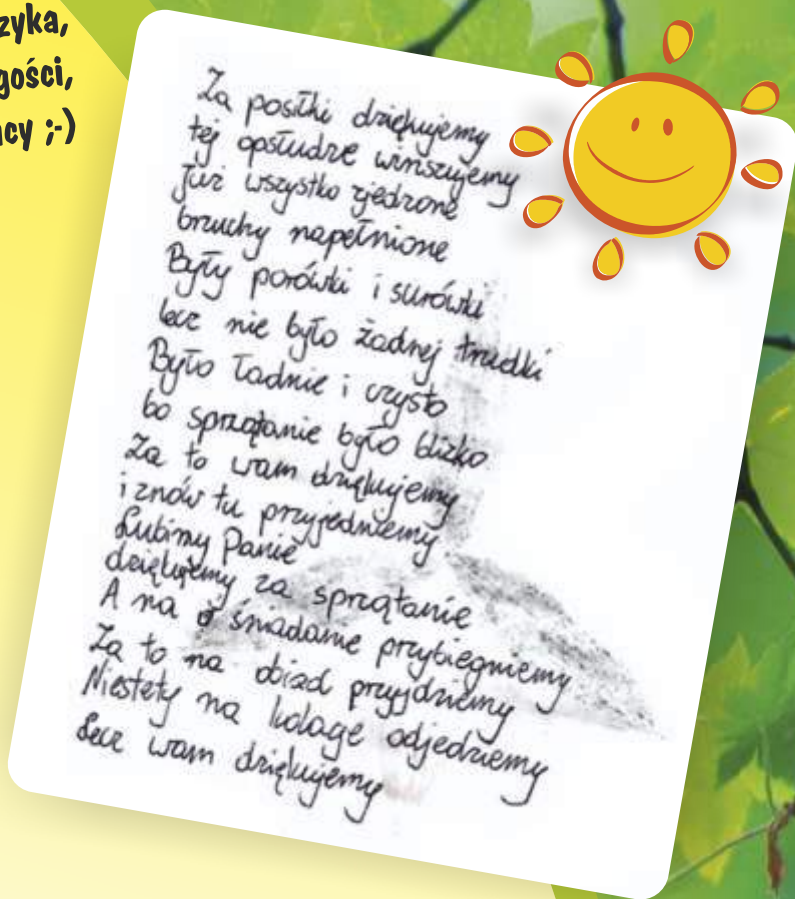 zyka,
gości,
cy ;-)
Za posiłki dziękujemy
tej opsłudze winszujemy
Już wszystko zjedzone
brzuchy napełnione
Były porówki i surówki
lecz nie było żadnej trudki
Było ładnie i czysto
bo sprzątanie było blizko
Za to wam dziękujemy
i znów tu przyjedniemy
Lubimy Panie
dziękujemy za sprzątanie
A na śniadanie przybiegniemy
Za to na obiad przyjdziemy
Niestety na kolage odjedziemy
Lecz wam dziękujemy